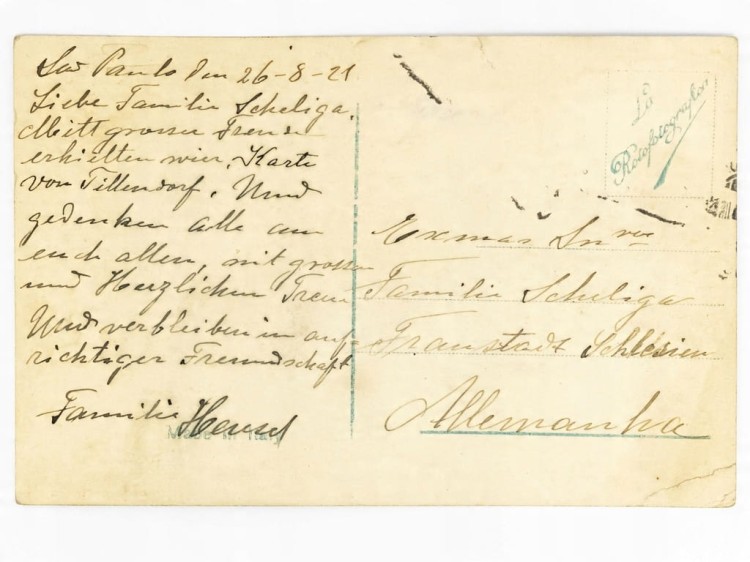 Sao Paulo den 26-8-21
Liebe Familie Scheliga,
Mitt grosser Freude
erhielten wier, Karte
von Tillendorf. Und
gedenken alle an
euch allen, mit grosser
und Herzlichen Treue
Und verbleiben in auf-
richtiger Freundschaft
Familie Hensel
Made in Italy
La
Rotofotografica
Exmas Snres
Familie Scheliga
Fraustadt Schlesien
Allemanha